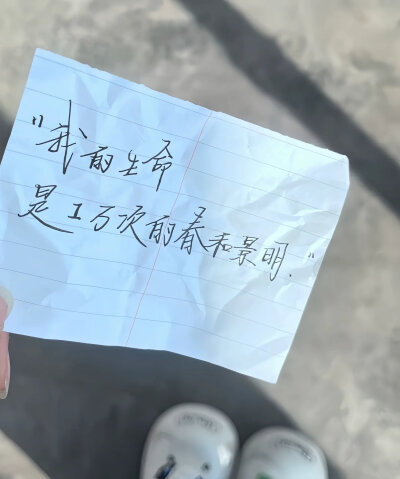 "我的生命
是1万次的春和景明."